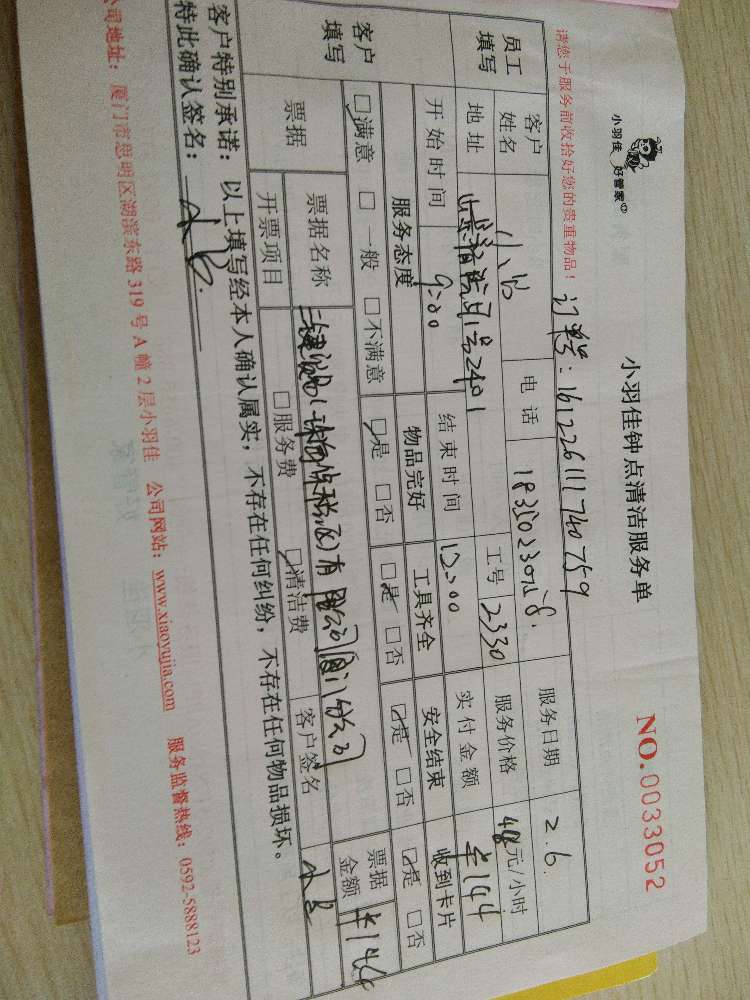 小羽佳 好管家
小羽佳钟点清洁服务单
NO.0033052
请您于服务前收拾好您的贵重物品！
订单号：161226111740759
员工填写
客户姓名
电话
服务日期 2.6.
地址
1号2401
工号 2330
服务价格 48元/小时
开始时间 9:00
结束时间 12:00
实付金额 ¥144
客户填写
服务态度 物品完好 工具齐全 安全结束 收到卡片
☑满意 □一般 □不满意 ☑是 □否 ☑是 □否 ☑是 □否 ☑是 □否
票据
票据名称
有限公司厦门分公司
票据金额 ¥144
开票项目 □服务费 ☑清洁费 客户签名
客户特别承诺：以上填写经本人确认属实，不存在任何纠纷，不存在任何物品损坏。
特此确认签名：
公司地址：厦门市思明区湖滨东路319号A幢2层小羽佳 公司网站：www.xiaoyujia.com 服务监督热线：0592-5888123